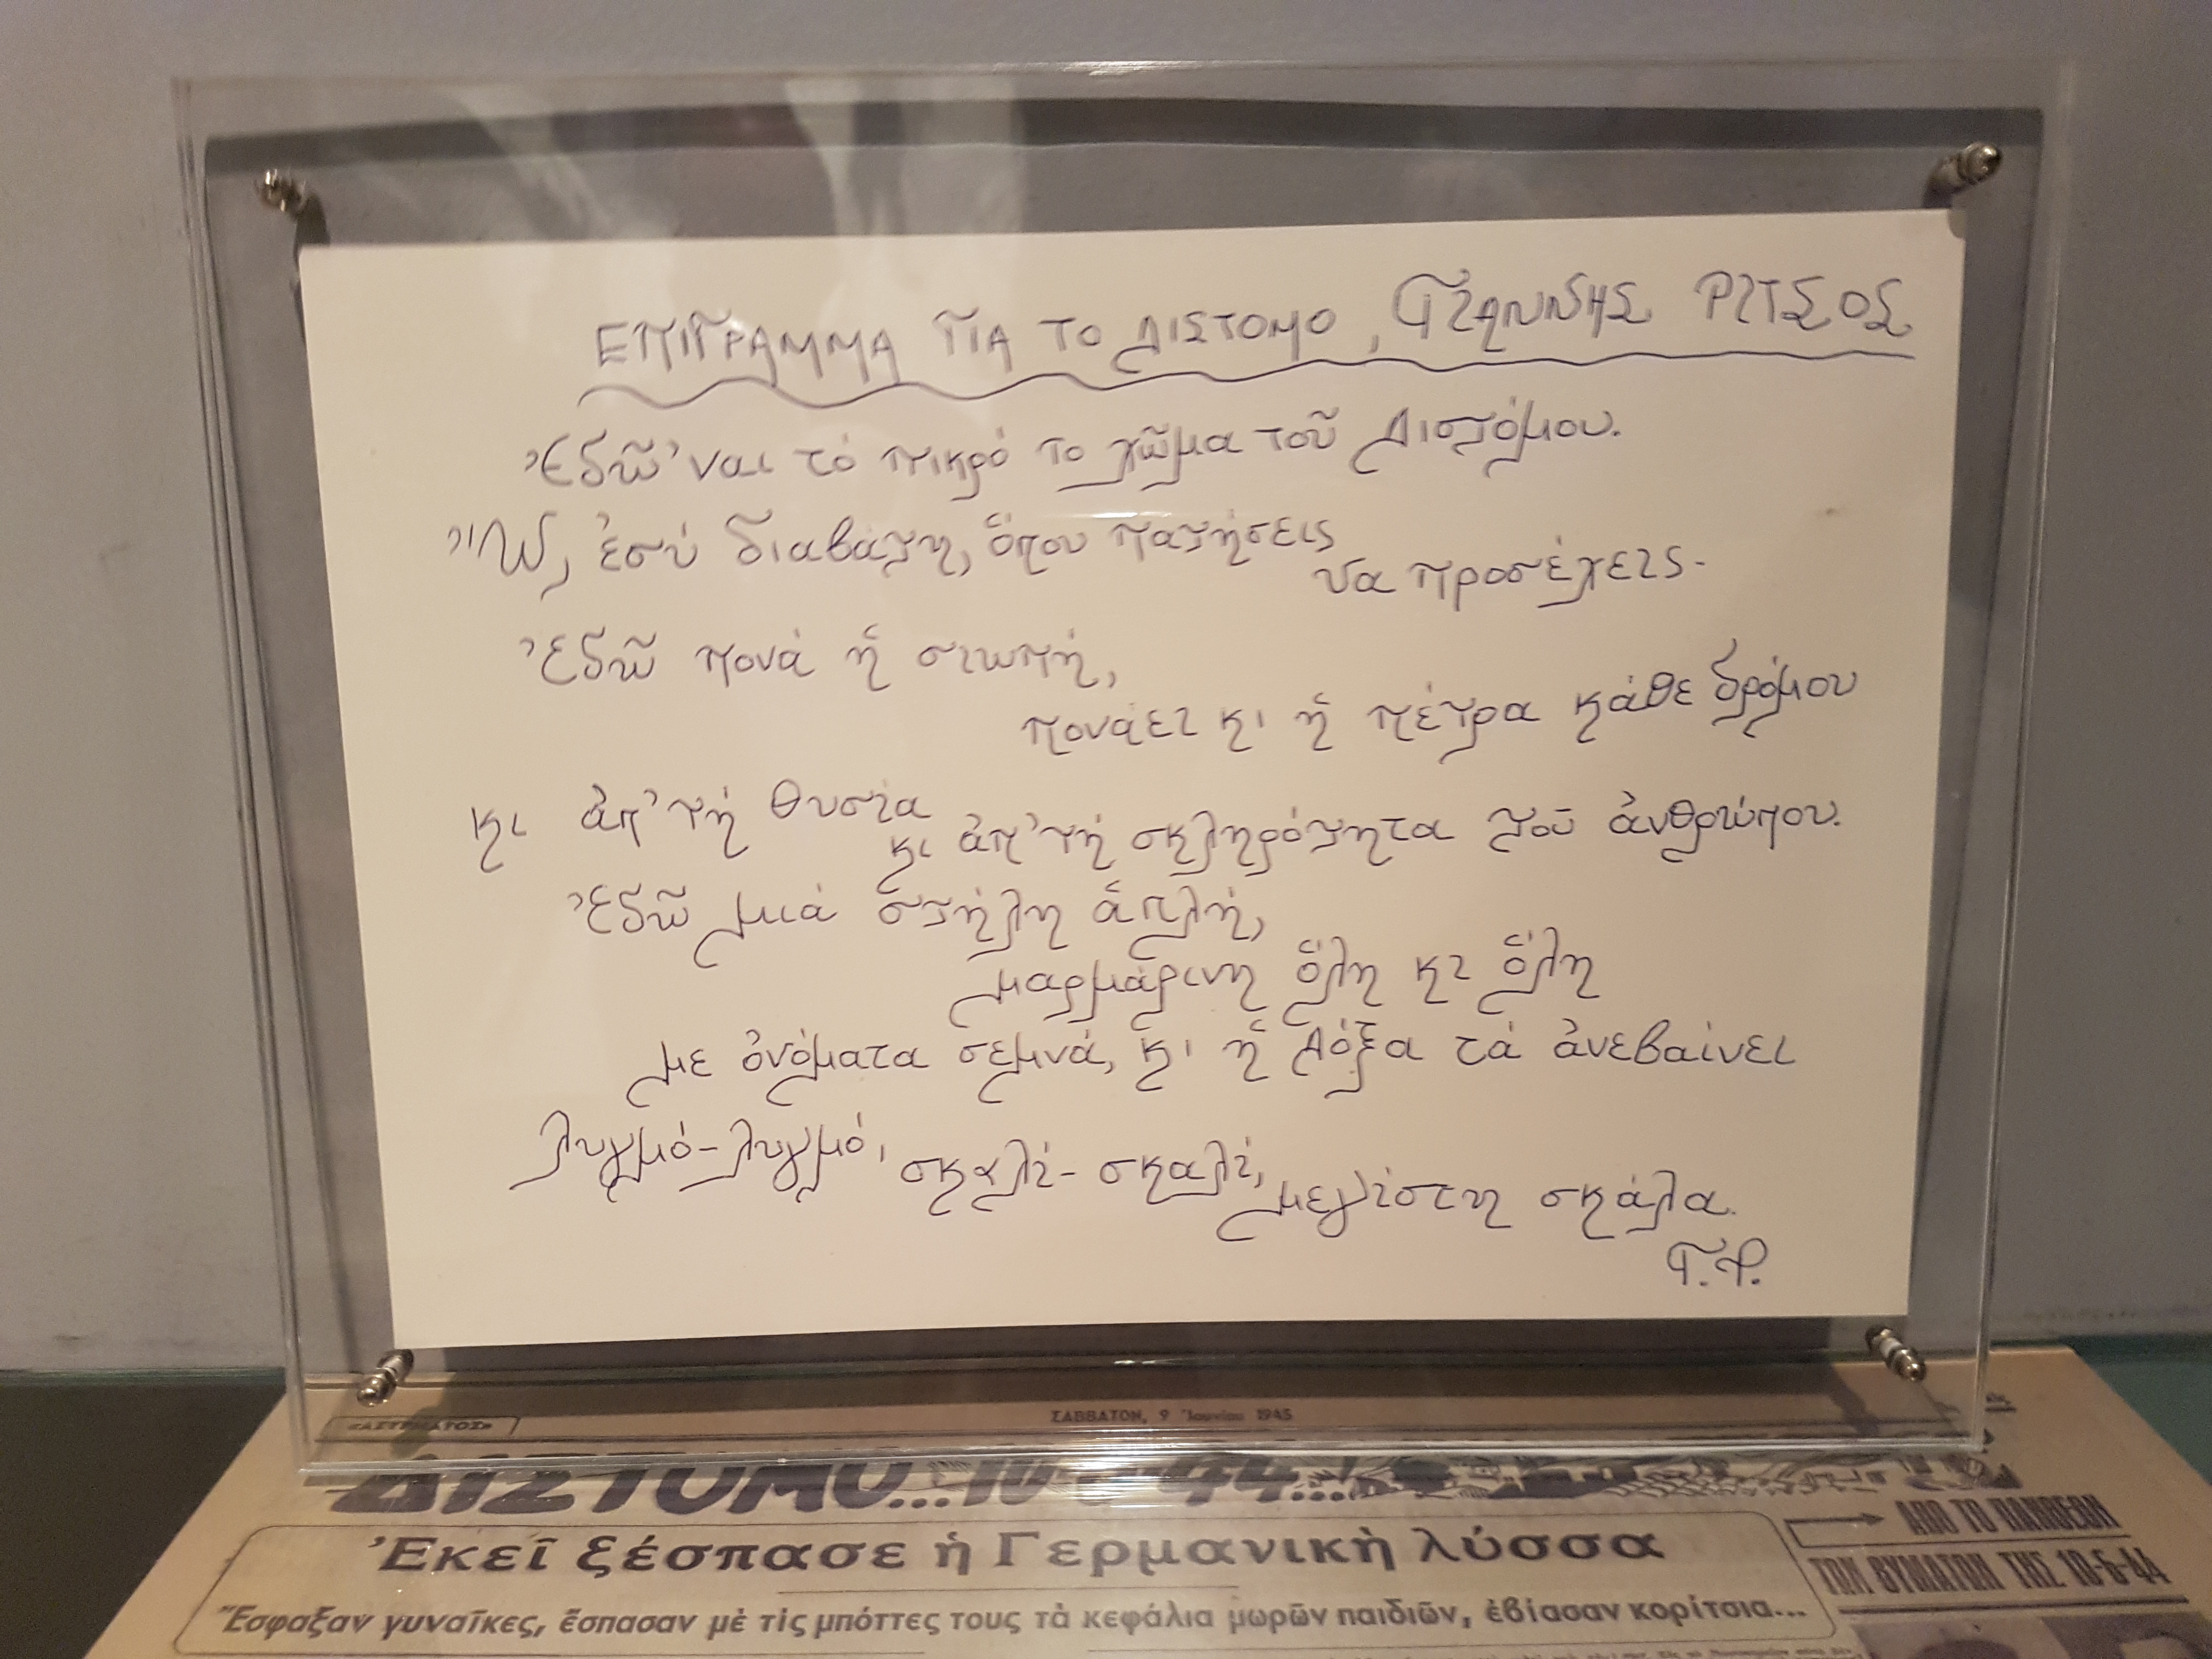 ΕΠΙΓΡΑΜΜΑ ΓΙΑ ΤΟ ΔΙΣΤΟΜΟ, ΓΙΑΝΝΗΣ ΡΙΤΣΟΣ
Ἐδῶ 'ναι τό πικρό το χῶμα τοῦ Διστόμου.
Ὤ, ἐσύ διαβάτη, ὅπου πατήσεις
να προσέχεις.
Ἐδῶ πονά ἡ σιωπή,
πονάει κι ἡ πέτρα κάθε δρόμου
κι ἀπ' τή θυσία
κι ἀπ' τή σκληρότητα τοῦ ἀνθρώπου.
Ἐδῶ μιά στήλη ἁπλή,
μαρμάρινη ὅλη κι ὅλη
με ὀνόματα σεμνά, κι ἡ Δόξα τά ἀνεβαίνει
λυγμό-λυγμό, σκαλί-σκαλί,
μεγίστη σκάλα.
Γ.Ρ.
«ΑΣΥΡΜΑΤΟΣ»
ΣΑΒΒΑΤΟΝ, 9 Ἰουνίου 1945
ΔΙΣΤΟΜΟ...10-6-44...
Ἐκεῖ ξέσπασε ἡ Γερμανικὴ λύσσα
Ἔσφαξαν γυναῖκες, ἔσπασαν μὲ τὶς μπόττες τους τὰ κεφάλια μωρῶν παιδιῶν, ἐβίασαν κορίτσια...
ΑΠΟ ΤΟ ΠΑΝΘΕΟΝ
ΤΩΝ ΘΥΜΑΤΩΝ ΤΗΣ 10-6-44